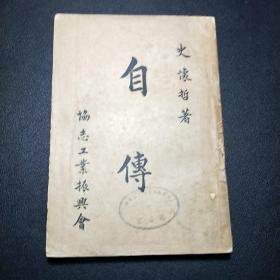 史懷哲著
自傳
協志工業振興會